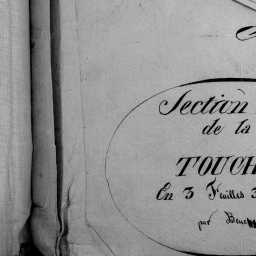 Section
de la
TOUCH
En 3 Feuilles 3
par